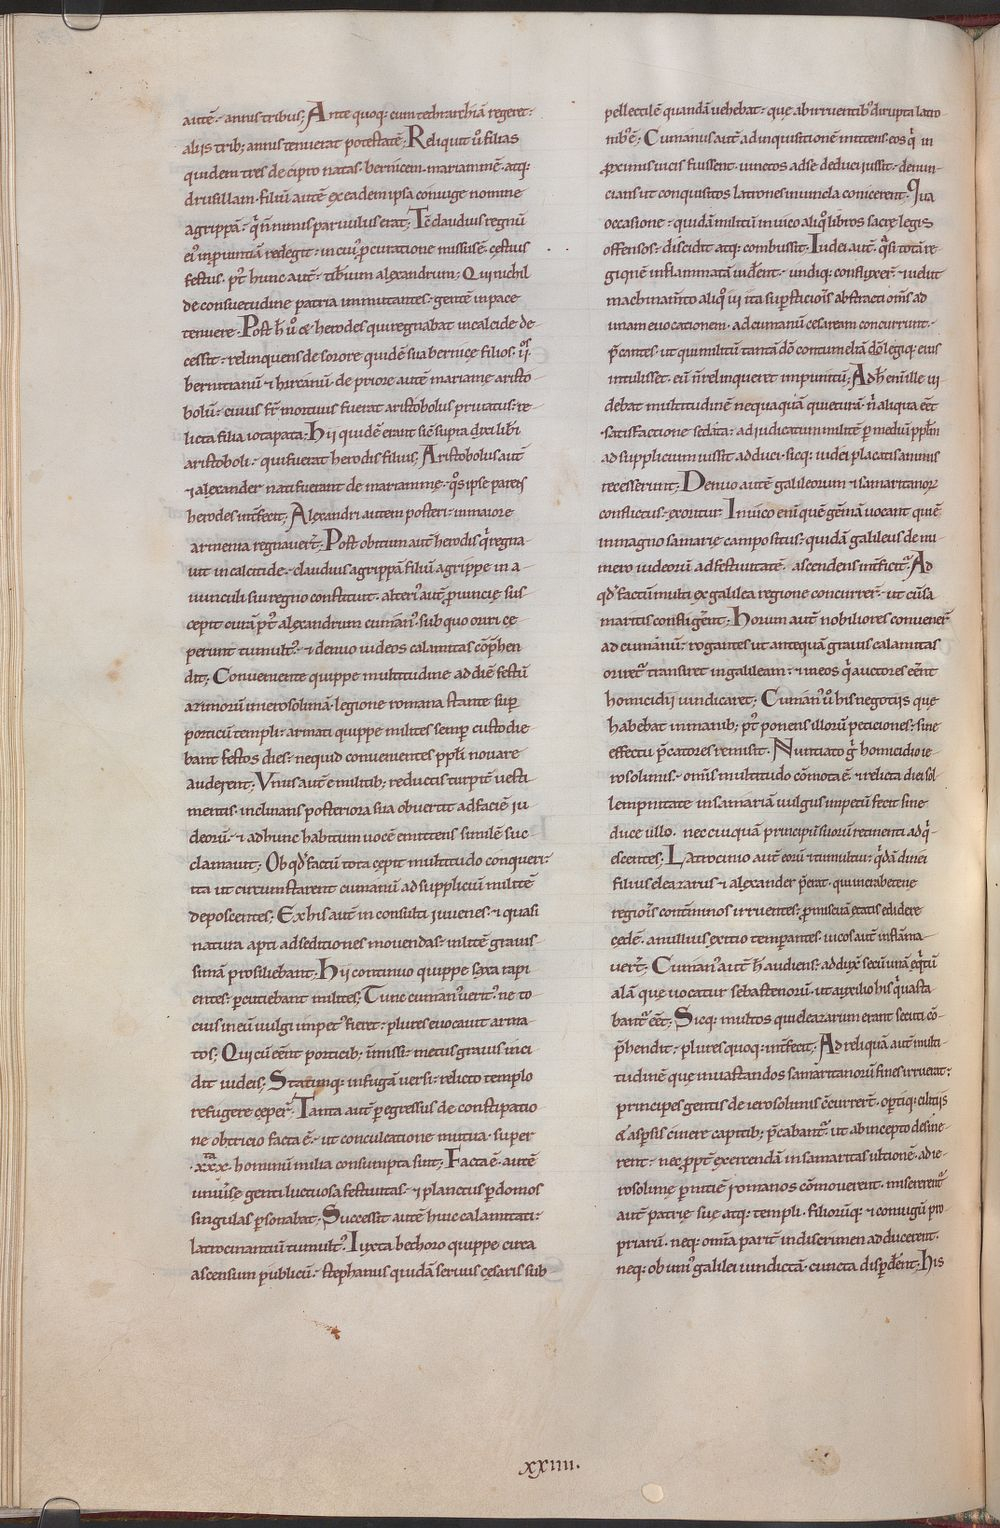 autē· annis tribus; Ante quoq; cum tethrarchiā regeret·
aliis trib; annis tenuerat potestatē; Reliquit ů filias
quidem tres de cipro natas· bernicem· mariammen· atq;
drusillam· filiū autē ex eadem ipsa coniuge nomine
agrippā· erat; claudius regnū
redegit· in cuiꝰ procuratione missus ē· cestius
festus· p̄t hunc autē· tiberium alexandrum; Qui nichil
de consuetudine patria inmutantes· gentē in pace
tenuere· Post herodes qui regnabat in calcide de-
cessit· relinquens de sorore quidē sua bernice filios·
bernitianū ⁊ hircanū· de priore autē mariamne aristo
bolū· cuius fr̄ mortuus fuerat aristobolus priuatus· re-
licta filia iotapata; Hii quidē erant sic supra dixi liberi
aristoboli· qui fuerat herodis filius; Aristobolus aut̄
⁊ alexander nati fuerant de mariamme· q̊s ipse pater
herodes int̄fecit; Alexandri autem posteri· in maiore
armenia regnauer̄; Post obitum aut̄ herodis q̇ regna
uit in calcide· claudius agrippā filiū agrippe in a
uunculi sui regno constituit· alteriꝰ aut̄ prouincie sus
cepit curā p̄t alexandrum cumanꝰ· sub quo oriri ce
perunt tumultꝰ· ⁊ denuo iudeos calamitas cōp̄hen
dit; Conueniente quippe multitudine ad diē festū
azimorū in ierosolimā· legione romana stante sup̄
porticū templi· armati quippe milites semp̄ custodie
bant festos dies· nequid conuenientes pp̄li nouare
auderent; Vnus autē e militib; reductis turpit̄ uesti
mentis· inclinans posteriora sua obuertit ad faciē iu
deorū· ⁊ ad hunc habitum uocē emittens similē suc
clamauit; Ob qd̄ factū tota cepit multitudo conqueri·
ita ut circumstarent cumanū ad supplicium militē
deposcentes; Ex his aut̄ inconsulti iuuenes· ⁊ quasi
natura apti ad seditiones mouendas· militē grauis-
simā prosiliebant; Hii continuo quippe saxa rapi
entes· p̄cutiebant milites; Tunc cumanꝰ ueritꝰ ne to
cius in eū uulgi impetꝰ fieret· plures euocauit arma
tos; Qui cū eēnt porticib; īmissi· metus grauis inci
dit iudeis; Statimq; in fugā uersi· relicto templo
refugere ceper̄; Tanta aut̄ p̄ egressus de constipatio
ne obtricio facta ē· ut conculcatione mutua· super
·xxx· hominū milia consumpta sint; Facta ē· autē
uniuerse genti luctuosa festiuitas· ⁊ planctus p̄ domos
singulas p̄sonabat; Successit autē huic calamitati·
latrocinantiū tumultꝰ; Iuxta bethoro quippe circa
ascensum publicū· stephanus quidā seruus cesaris sub
pellectilē quandā uehebat· que ab irruentibꝰ dirupta latro
nibꝰ ē; Cumanus aut̄ ad inquisitionē mittens· eos q̇ in
proximis uicis fuissent· uinctos ad se deduci iussit· denun-
cians ut conquisitos latrones in uincla conicerent; Qua
occasione· quidā militū in uico aliq̊ libros sacre legis
offensos· discidit atq; combussit; Iudei aut̄· q̄si totā re-
gionē inflammatā uid̄ent· undiq; confluxer̄· ⁊ uelut
machinam̄to aliq̊ ui ita sup̄sticiōis abstracti om̄s ad
unam euocationem· ad cumanū cesaream concurrunt·
p̄cantes· ut qui militū tantā dō contumeliā dō legiq; eius
intulisset· eū n̄ relinqueret impunitū; Ad h̄ enī ille ui
debat multitudinē nequaquā quieturā· n̄ aliqua eēt
·satisfactione sedata· adiudicatum militē p̄ mediū pp̄lm
ad supplicium iussit adduci· sicq; iudei placatis animis
recesserunt; Denuo autē galileorum ⁊ samaritanoꝝ
conflictus· exoritur· In uico enī quē gemā uocant quiē
in magno samarie campo situs· quidā galileus de nu
mero iudeorū ad festiuitatē· ascendens int̄ficit̄; Ad
qd̄ factū multi ex galilea regione concurrer̄· ut cū sa
maritis confligerent; Horum aut̄ nobiliores conuener̄
ad cumanū· rogantes ut antequā grauis calamitas
oriret̄ transiret in galileam· ⁊ in eos q̇ auctores eēnt
homicidii uindicaret; Cumanꝰ ů his negotiis que
habebat in manib; p̄t ponens illorū peticiones· sine
effectu p̄catores remisit· Nuntiato g̊ homicidio ie-
rosolimis· om̄is multitudo cōmota ē· ⁊ relicta diei sol
lempnitate in samariā uulgus impetū fecit sine
duce ullo· nec cuiquā principū suorū retinenti adq̇-
escentes; Latrocinio aut̄ eorū ⁊ tumultui· q̇dā dinei
filius eleazarus ⁊ alexander p̄erat· qui
regiōis contiminos irruentes· promiscuā etatis edidere
cedē· a nullius exitio temperantes· uicos aut̄ inflāma-
uer̄; Cumanꝰ aut̄ h̄ audiens· adduxit̄ secū unā eq̇tū
alā que uocatur sebastenorū· ut auxilio his q̇ uasta
bant̄ eēt; Sicq; multos qui eleazarum erant secuti cō-
p̄hendit· plures quoq; int̄fecit; Ad reliquā aut̄ multi-
tudinē que in uastandos samaritanorū fines irruerat·
principes gentis de ierosolimis c̄currer̄t· op̄tiq; ciliciis
& asp̄sis cinere capitib; p̄cabant̄· ut ab incepto desine-
rent· nec propt̄ exercendā in samaritas ultionē· ad ie-
rosolime p̄nitiē romanos cōmouerent· misererent̄
aut̄ patrie sue atq; templi· filiorūq; ⁊ coniugū pro
priarū· neq; omīa parit̄ in discrimen adducerent·
neq; ob uniꝰ galilei uindictā· cuncta disp̄d̄ent; His
xxiiii·